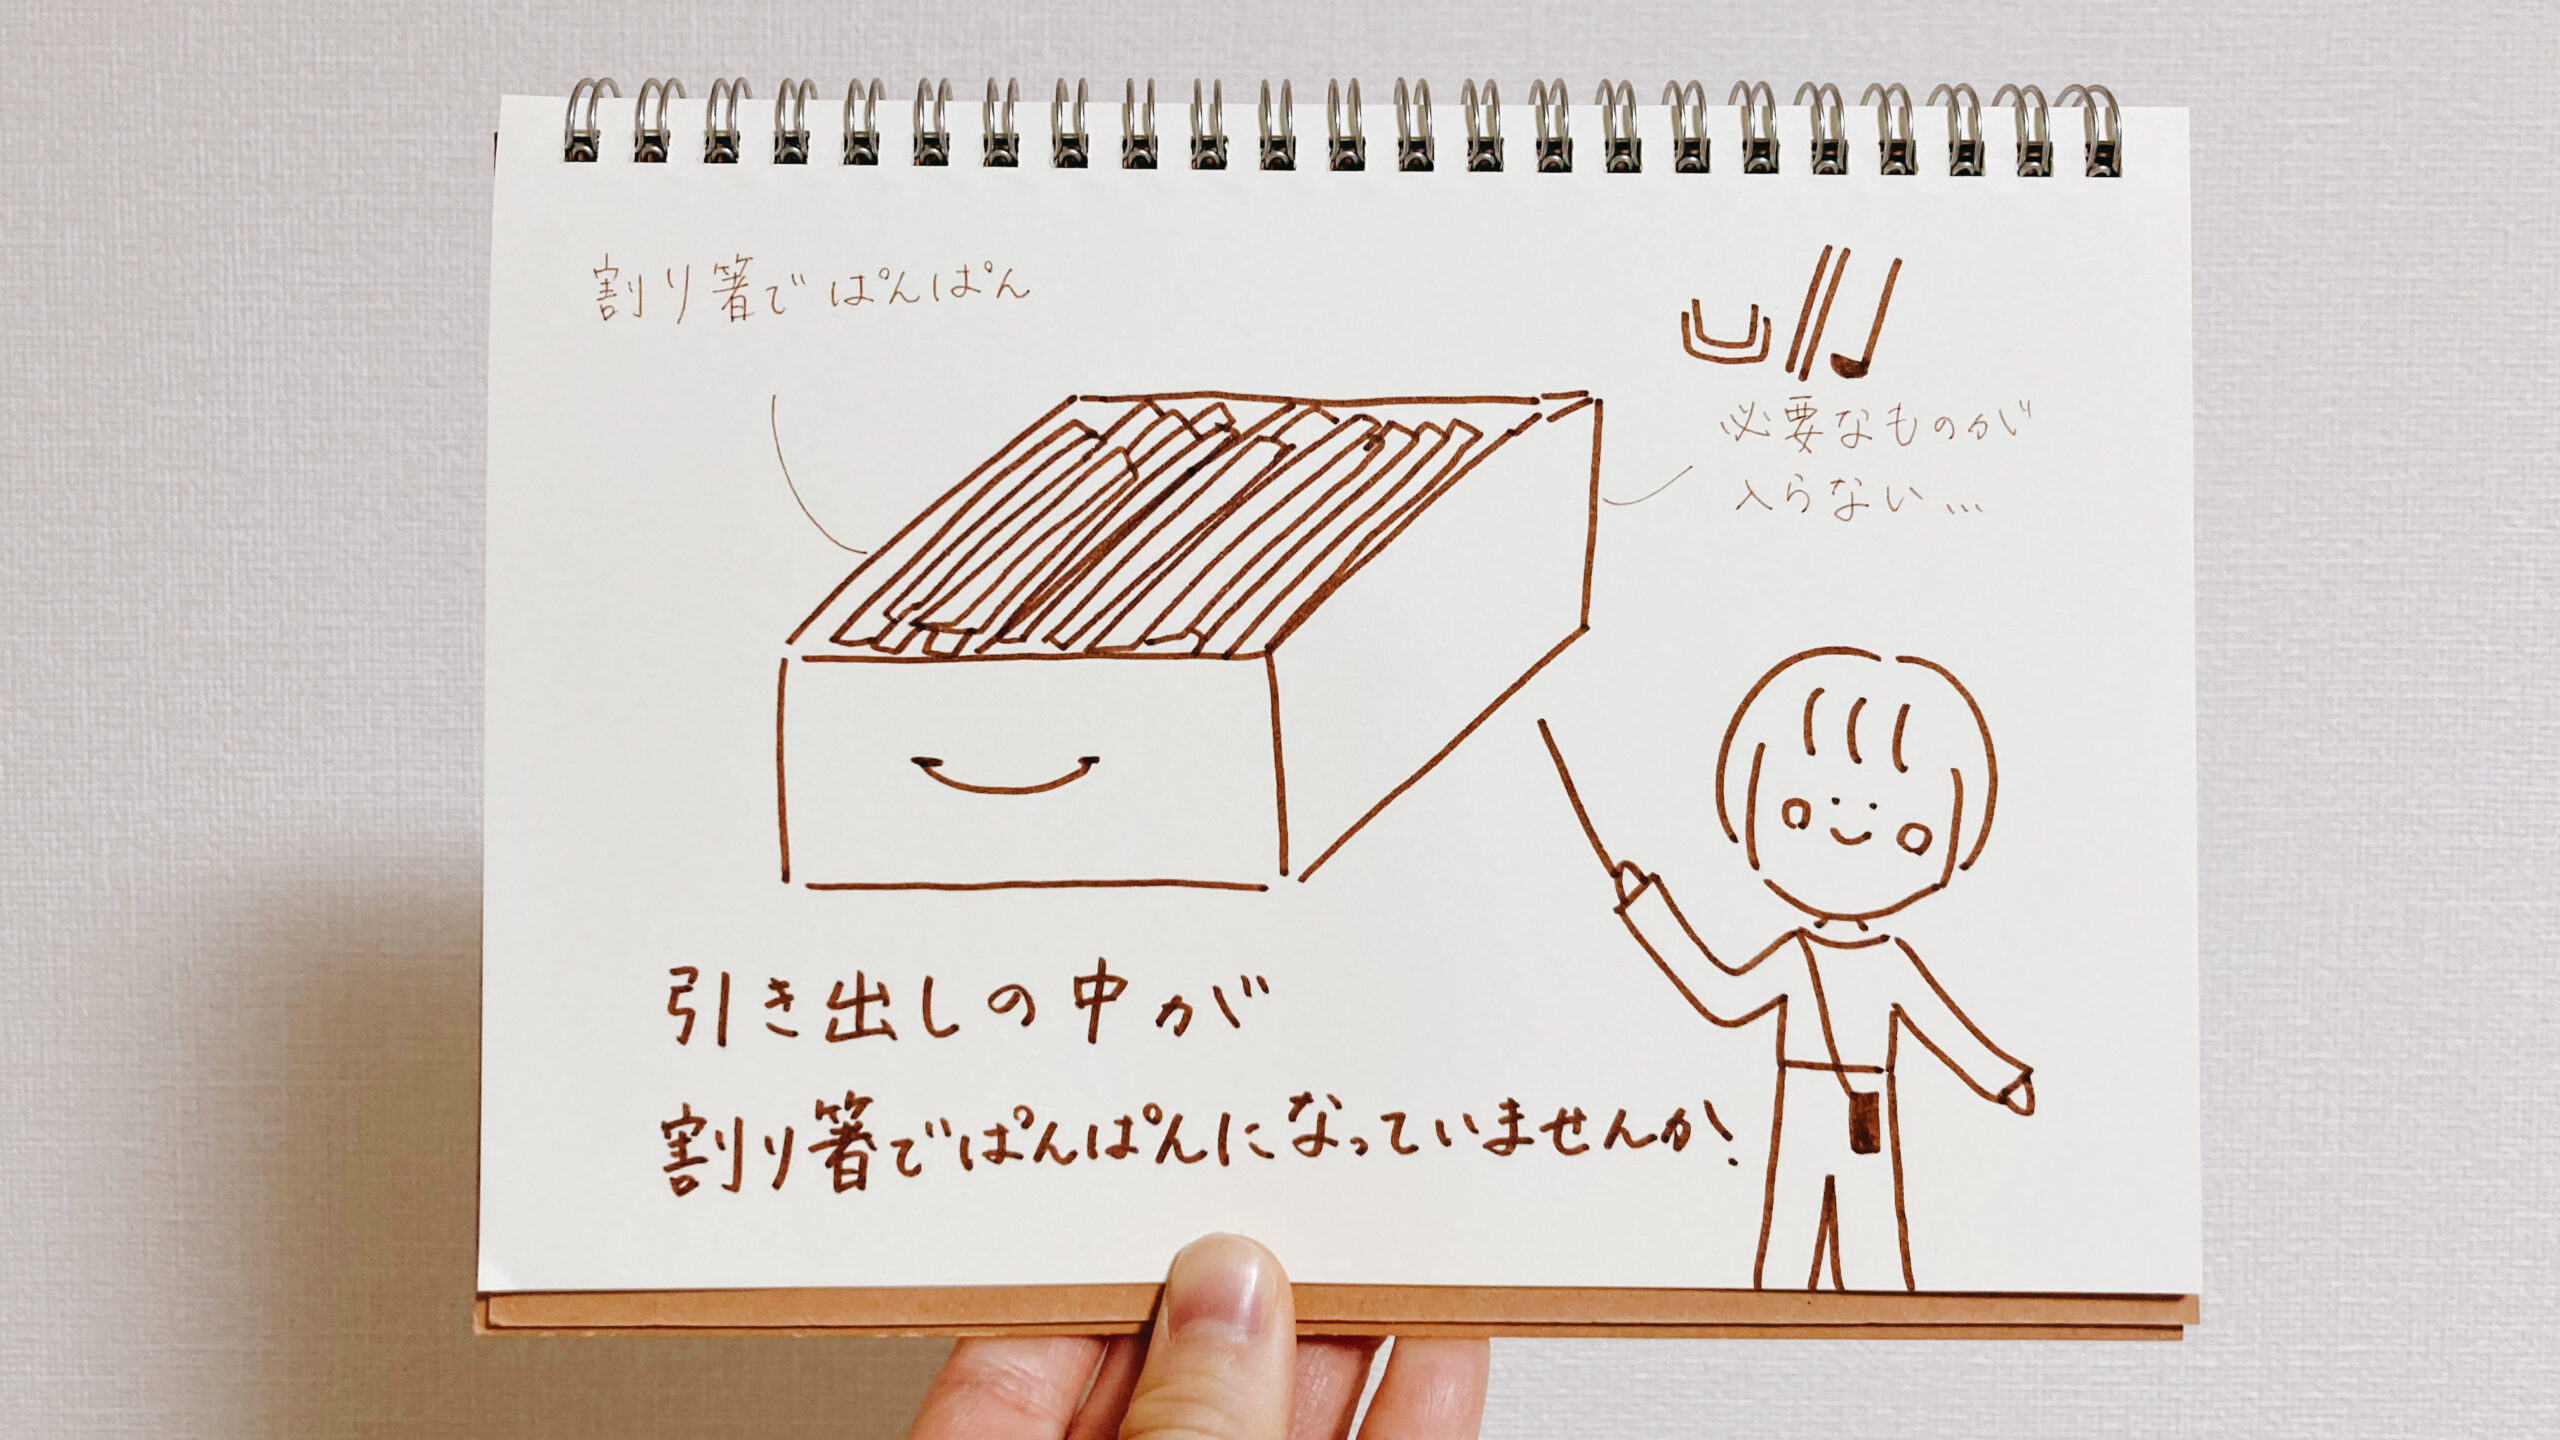 割り箸でぱんぱん
必要なものが
入らない…
引き出しの中が
割り箸でぱんぱんになっていませんか?